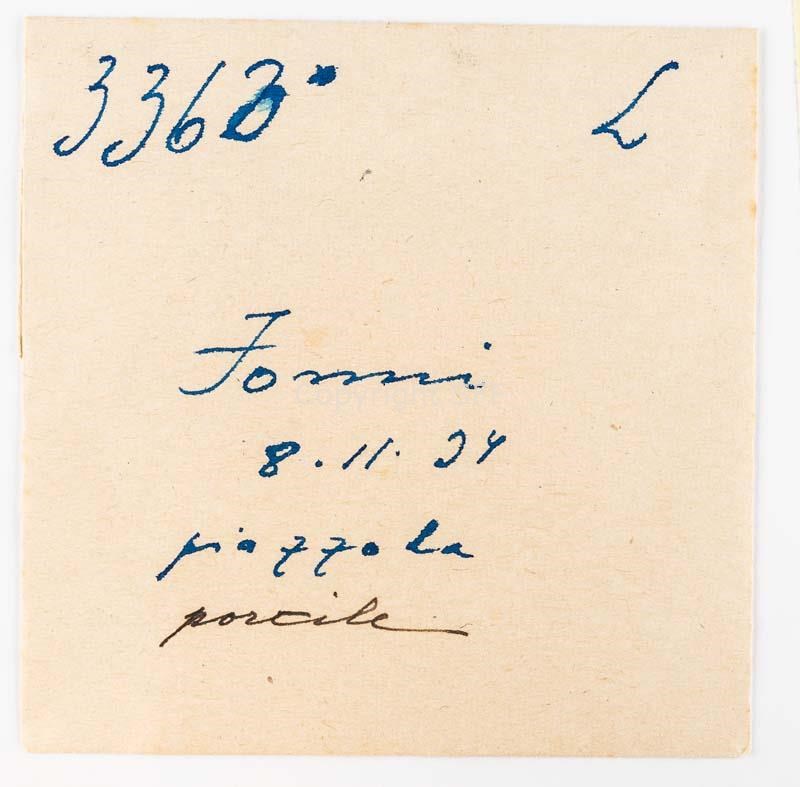 3363• L
Fonni
8.11.24
piazzola
porcile